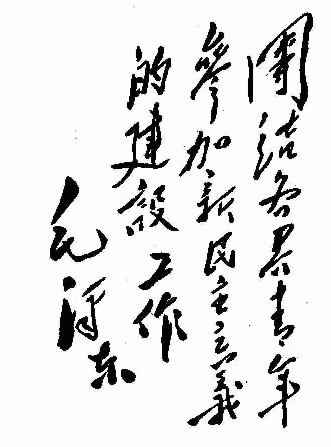 團结各界青年
參加新民主主義
的建設工作
毛澤东